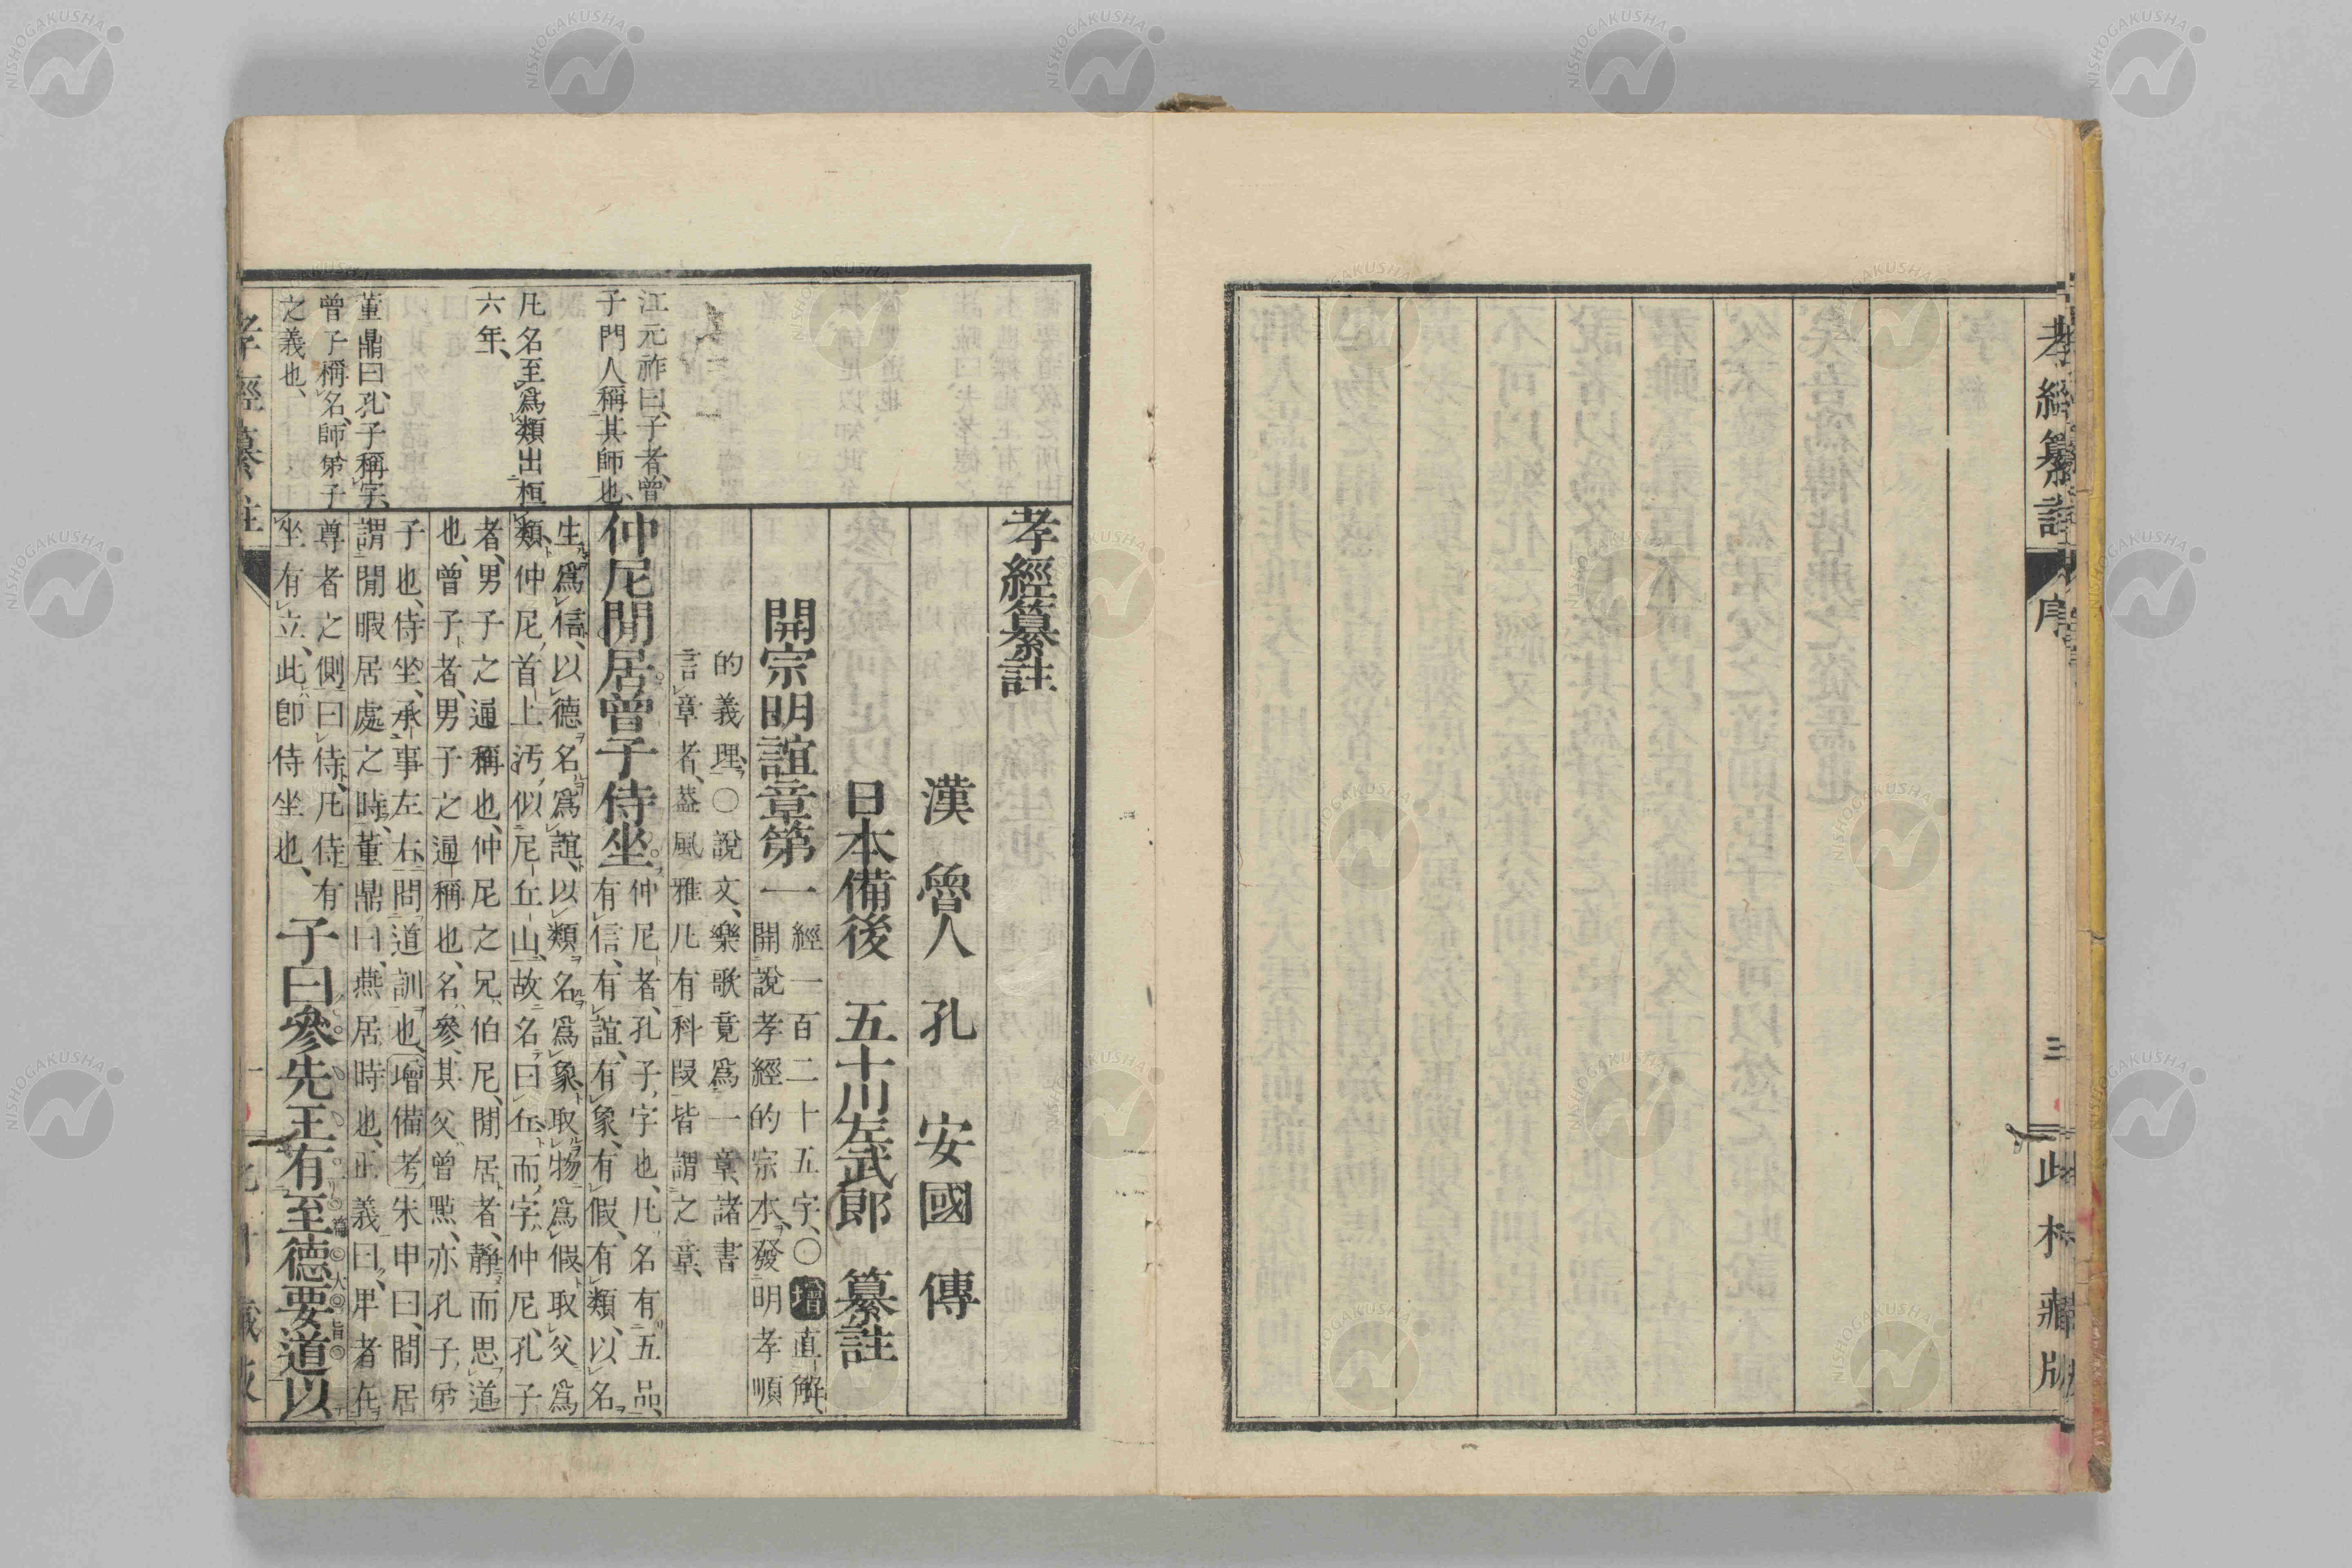 孝經纂註
序
三
此村藏版
孝經纂註
漢 魯人 孔 安 國 傳
日本備後 五十川左武郎 纂註
開宗明誼章第一
經一百二十五字、〇增直解、
開說孝經的宗本、發明孝順
的義理、〇說文、樂歌竟爲一章、諸書
言章者、葢風雅凡有科段皆謂之章、
仲尼閒居曾子侍坐
仲尼者、孔子字也、凡名有五品、
有信、有誼、有象、有假、有類、以名
生爲信、以德名爲誼、以類名爲象、取物爲假、取父爲
類、仲尼首上汚似尼丘山、故名曰丘、而字仲尼、孔子
者、男子之通稱也、仲尼之兄伯尼、閒居者、靜而思道
也、曾子者、男子之通稱也、名參、其父曾點、亦孔子弟
子也、侍坐、承事左右、問道訓也、增備考朱申曰、間居
謂閒暇居處之時、董鼎曰、燕居時也、正義曰、卑者在
尊者之側曰侍、凡侍有
坐有立、此卽侍坐也、
子曰參先王有至德要道以
江元祚曰、子者、曾
子門人稱其師也、
凡名至爲類出桓
六年、
董鼎曰、孔子稱字、
曾子稱名、師弟子
之義也、